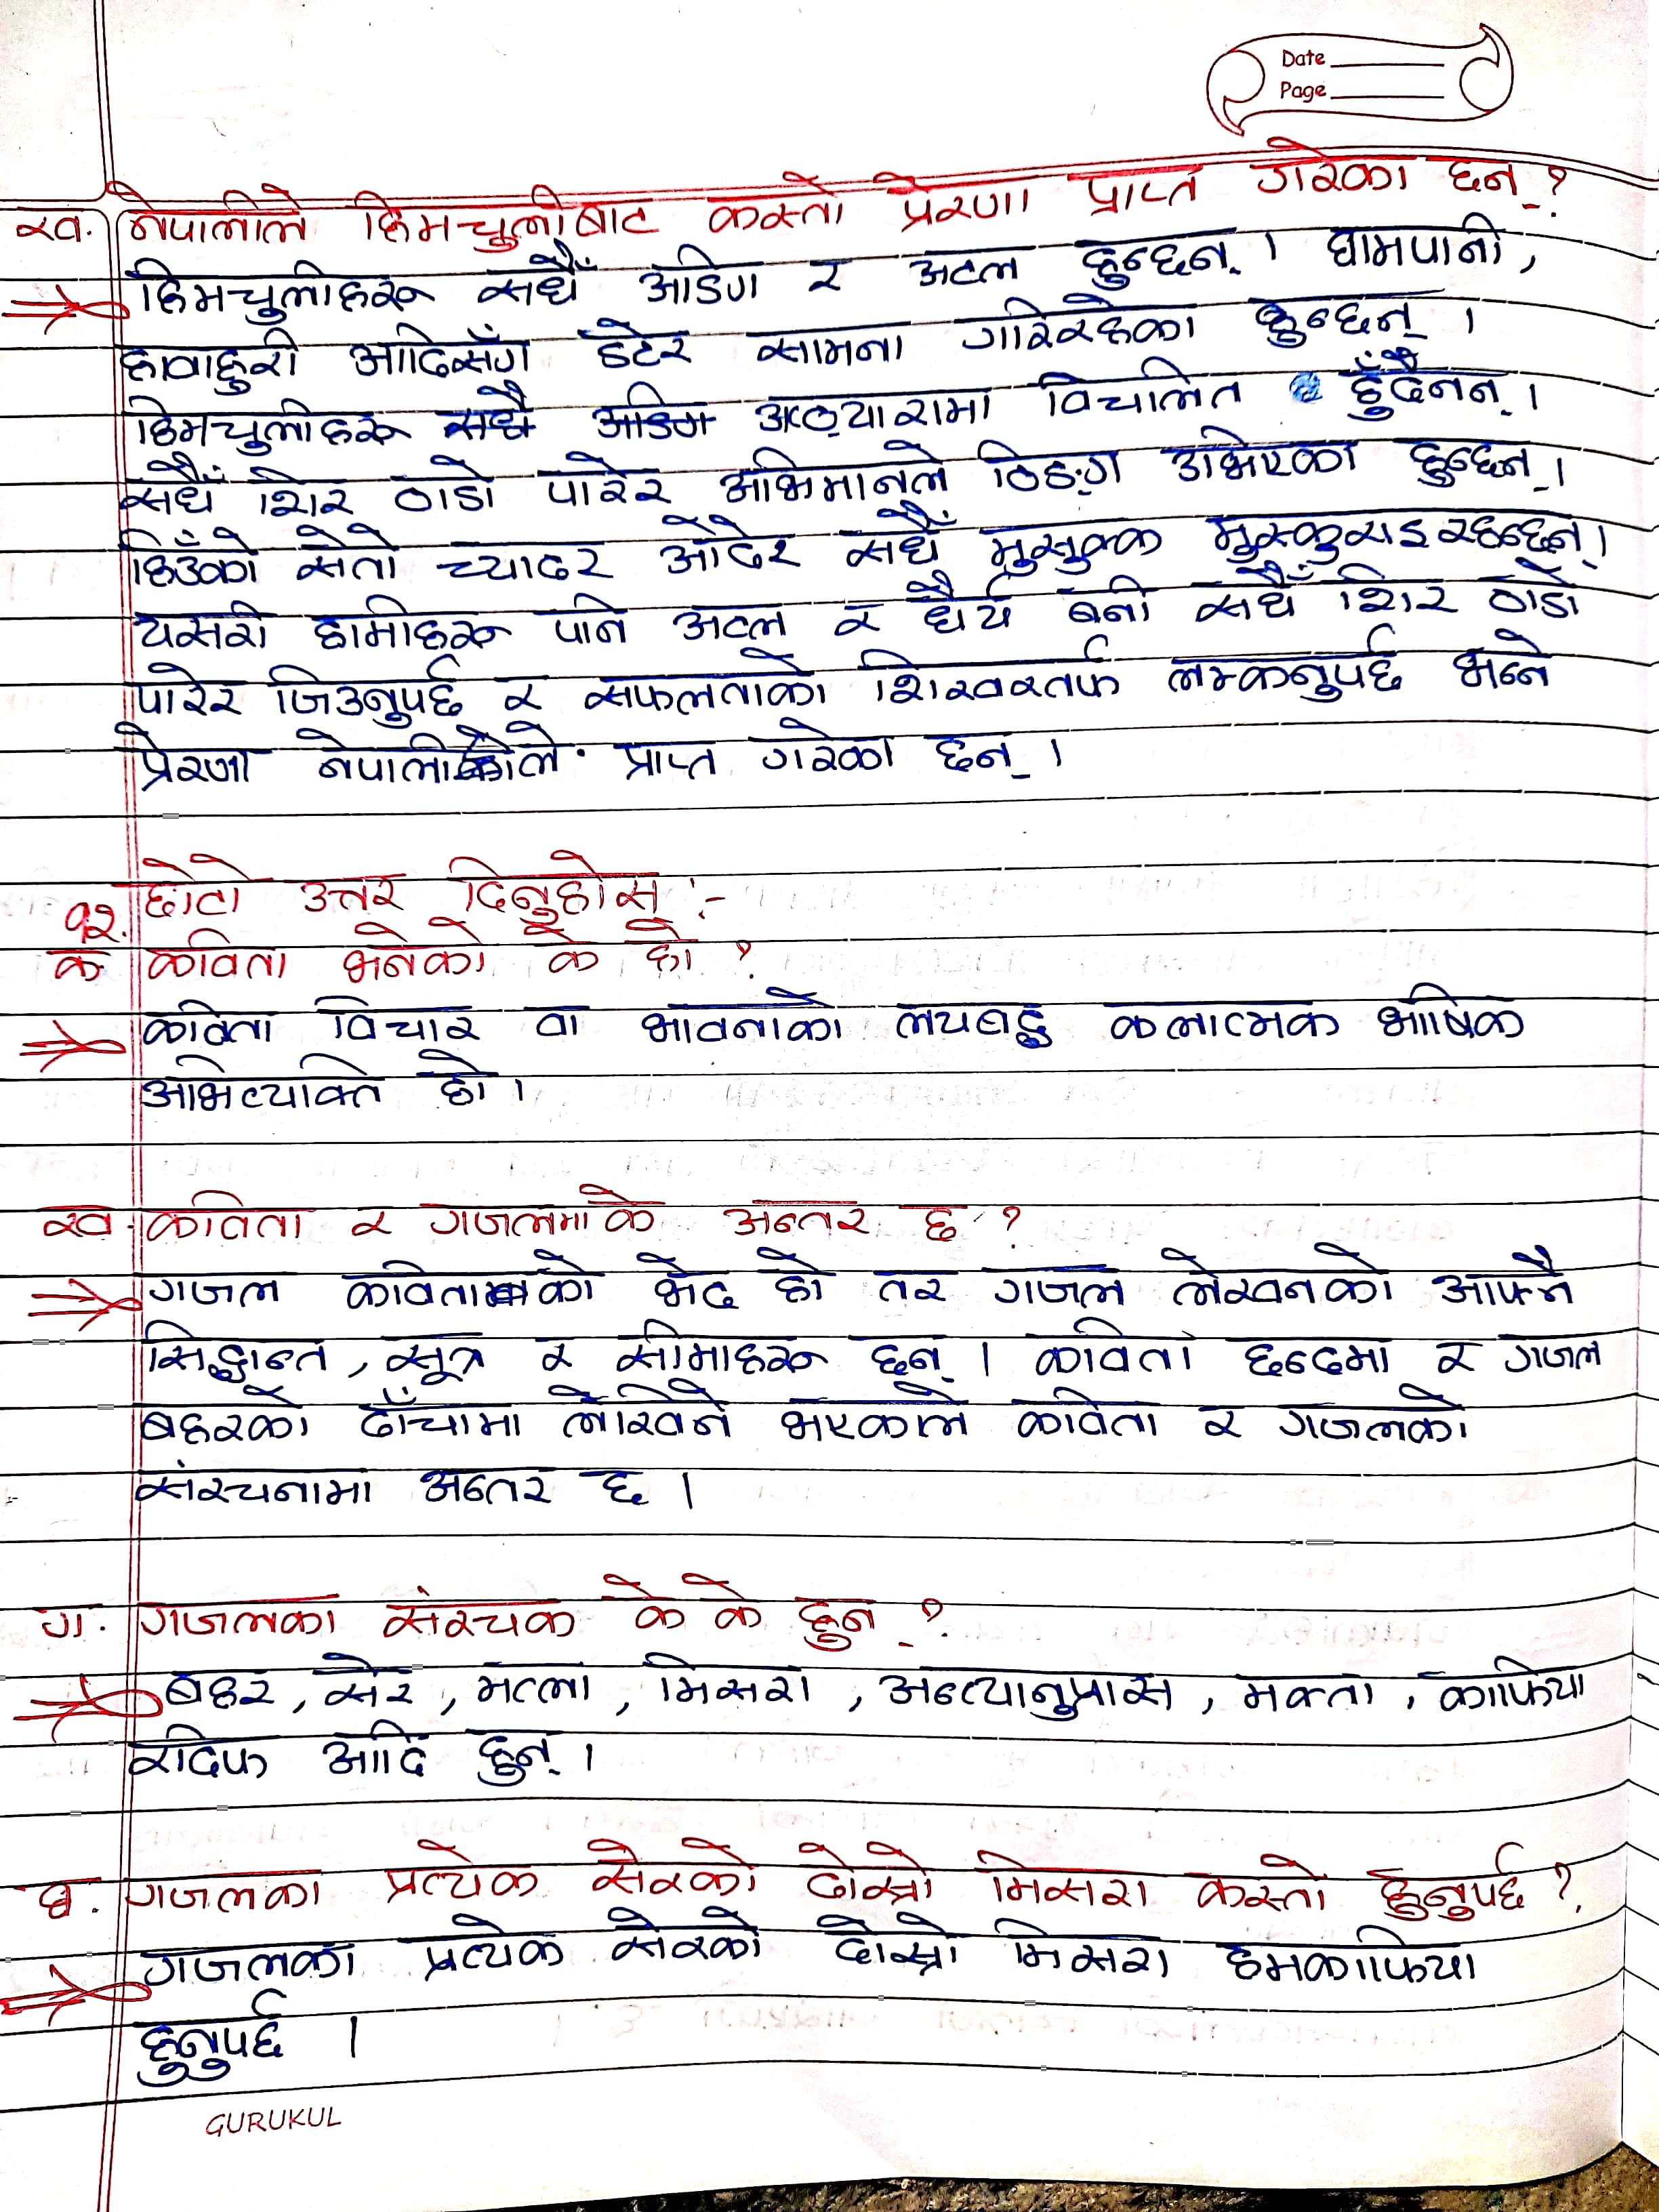 Date
Page
ख. नेपालीले हिमचुलीबाट कस्तो प्रेरणा प्राप्त गरेका छन् ?
हिमचुलीहरू सधैँ अडिग र अटल हुन्छन् । घामपानी,
हावाहुरी आदिसँग डटेर सामना गरिरहेका हुन्छन् ।
हिमचुलीहरू सधै अडिग अठ्यारामा विचलित हुँदैनन् ।
सधैँ शिर ठाडो पारेर अभिमानले ठिङ्ग उभिएका हुन्छन् ।
हिउँको सेतो च्यादर ओढेर सधैँ मुसुक्क मुस्कुराइरहन्छन् ।
यसरी हामीहरू पनि अटल र धैर्य बनी सधैँ शिर ठाडो
पारेर जिउनुपर्छ र सफलताको शिखरतर्फ लम्कनुपर्छ भन्ने
प्रेरणा नेपालीले प्राप्त गरेका छन् ।
१२. छोटो उत्तर दिनुहोस् :-
क कविता भनेको के हो ?
कविता विचार वा भावनाको लयबद्ध कलात्मक भाषिक
अभिव्यक्ति हो ।
ख. कविता र गजलमा के अन्तर छ ?
गजल कविताको भेद हो तर गजल लेखनको आफ्नै
सिद्धान्त, सूत्र र सीमाहरू छन् । कविता छन्दमा र गजल
बहरको ढाँचामा लेखिने भएकाले कविता र गजलको
संरचनामा अन्तर छ ।
ग. गजलका संरचक के के हुन् ?
बहर, सेर, मत्ला, मिसरा, अन्त्यानुप्रास, मक्ता, काफिया
रदिफ आदि हुन् ।
घ. गजलका प्रत्येक सेरको दोस्रो मिसरा कस्तो हुनुपर्छ ?
गजलका प्रत्येक सेरको दोस्रो मिसरा हमकाफिया
हुनुपर्छ ।
GURUKUL